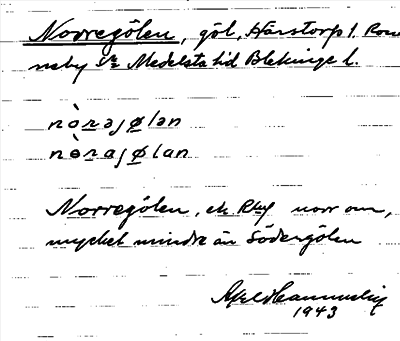 Norregölen, göl, Härstorp l. Ronn
neby sn Medelsta hd Blekinge l.
nòrəjølən
nòrajølan
Norregölen, ek Rbg norr om,
mycket mindre än Södergölen
1943